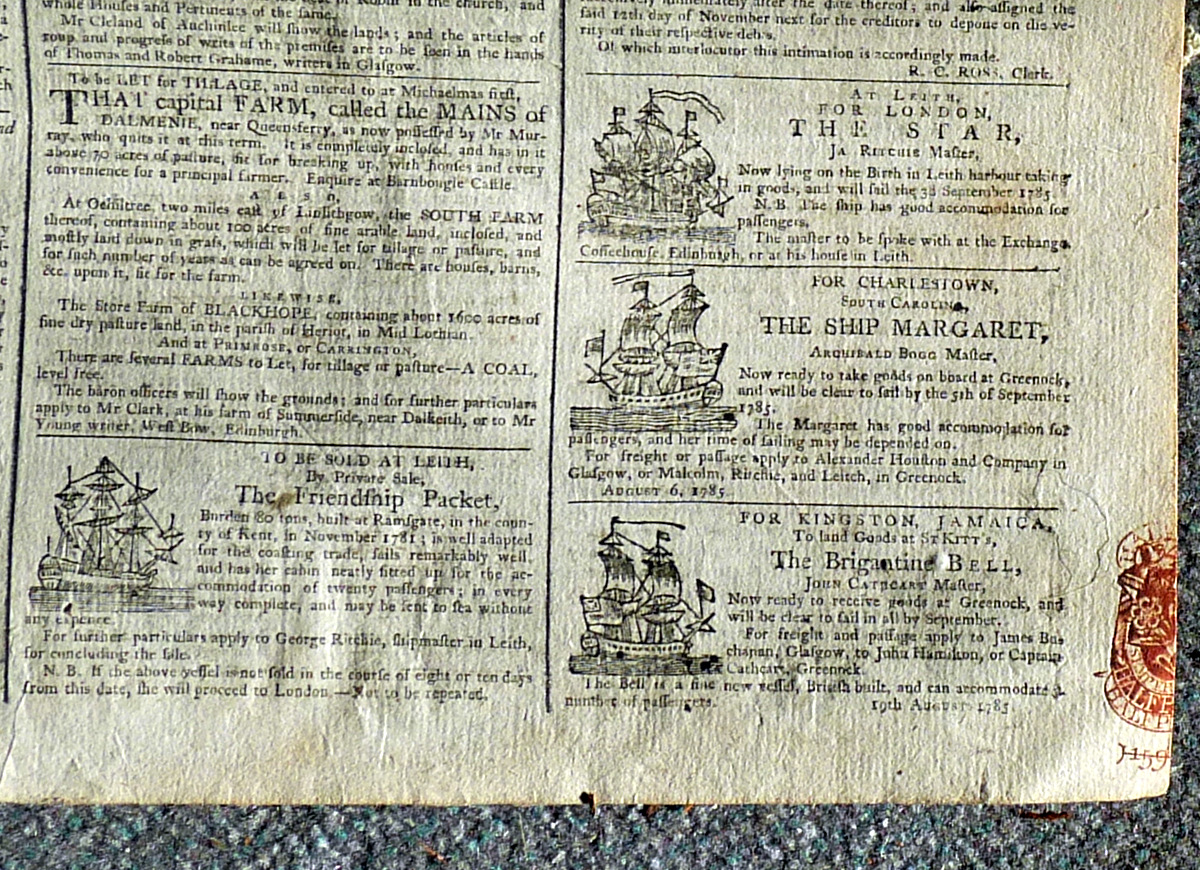 whole Houses and Pertinents of the same.
Mr Cleland of Auchinlee will show the lands; and the articles of
roup and progress of writs of the premises are to be seen in the hands
of Thomas and Robert Grahame, writers in Glasgow.
To be LET for TILLAGE, and entered to at Michaelmas first,
THAT capital FARM, called the MAINS of
DALMENIE, near Queensferry, as now possessed by Mr Mur-
ray, who quits it at this term. It is completely inclosed, and has in it
above 70 acres of pasture, fit for breaking up, with houses and every
convenience for a principal farmer. Enquire at Barnbougle Castle.
ALSO,
At Ochiltree, two miles east of Linlithgow, the SOUTH FARM
thereof, containing about 100 acres of fine arable land, inclosed, and
mostly laid down in grass, which will be set for tillage or pasture, and
for such number of years as can be agreed on. There are houses, barns,
&c. upon it, fit for the farm.
LIKEWISE,
The Store Farm of BLACKHOPE, containing about 1600 acres of
fine dry pasture land, in the parish of Heriot, in Mid Lothian.
And at PRIMROSE, or CARRINGTON,
There are several FARMS to Let, for tillage or pasture—A COAL,
level free.
The baron officers will show the grounds; and for further particulars
apply to Mr Clark, at his farm of Summerside, near Dalkeith, or to Mr
Young writer, West Bow, Edinburgh.
TO BE SOLD AT LEITH,
By Private Sale,
The Friendship Packet,
Burden 80 tons, built at Ramsgate, in the coun-
ty of Kent, in November 1781; is well adapted
for the coasting trade, sails remarkably well,
and has her cabin neatly fitted up for the ac-
commodation of twenty passengers; in every
way complete, and may be sent to sea without
any expence.
For further particulars apply to George Ritchie, shipmaster in Leith,
for concluding the sale.
N. B. If the above vessel is not sold in the course of eight or ten days
from this date, she will proceed to London.—Not to be repeated.
immediately after the date thereof; and also assigned the
said 12th day of November next for the creditors to depone on the ve-
rity of their respective debts.
Of which interlocutor this intimation is accordingly made.
R. C. ROSS, Clerk.
AT LEITH,
FOR LONDON,
THE STAR,
JA RITCHIE Master,
Now lying on the Birth in Leith harbour taking
in goods, and will sail the 3d September 1785.
N. B. The ship has good accommodation for
passengers.
The master to be spoke with at the Exchange
Coffeehouse, Edinburgh, or at his house in Leith.
FOR CHARLESTOWN,
SOUTH CAROLINA,
THE SHIP MARGARET,
ARCHIBALD BOGG Master,
Now ready to take goods on board at Greenock,
and will be clear to sail by the 5th of September
1785.
The Margaret has good accommodation for
passengers, and her time of sailing may be depended on.
For freight or passage apply to Alexander Houston and Company in
Glasgow, or Malcolm, Ritchie, and Leitch, in Greenock.
AUGUST 6, 1785
FOR KINGSTON, JAMAICA,
To land Goods at ST KITT's,
The Brigantine BELL,
JOHN CATHCART Master,
Now ready to receive goods at Greenock, and
will be clear to sail in all by September.
For freight and passage apply to James Bu-
chanan, Glasgow, to John Hamilton, or Captain
Cathcart, Greenock.
The Bell is a fine new vessel, British built, and can accommodate a
number of passengers.
19th AUGUST 1785
HALF
HALF P
J159